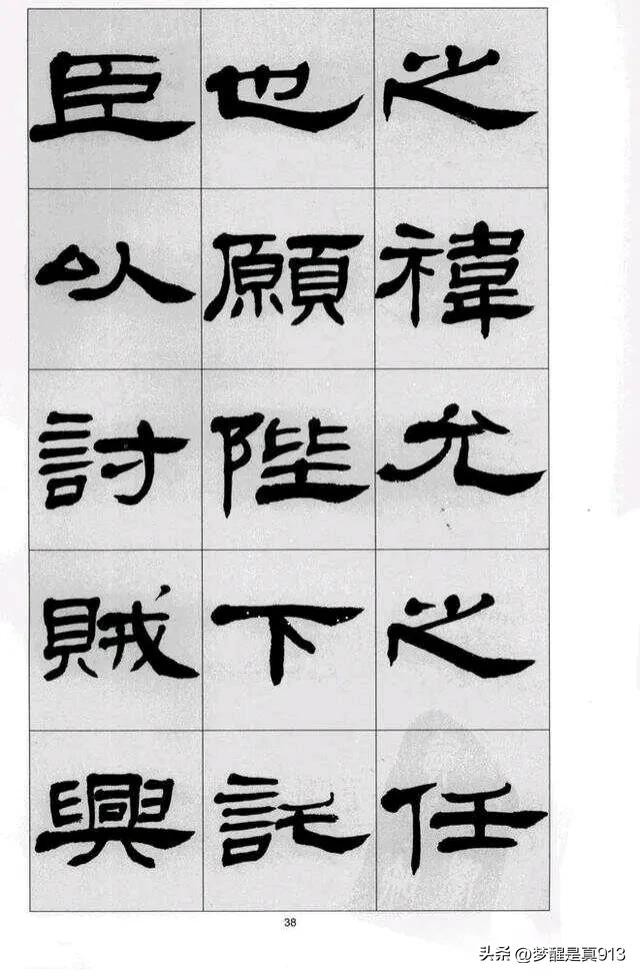 之禕允之任
也願陛下託
臣以討賊興
38
头条@梦醒是真913